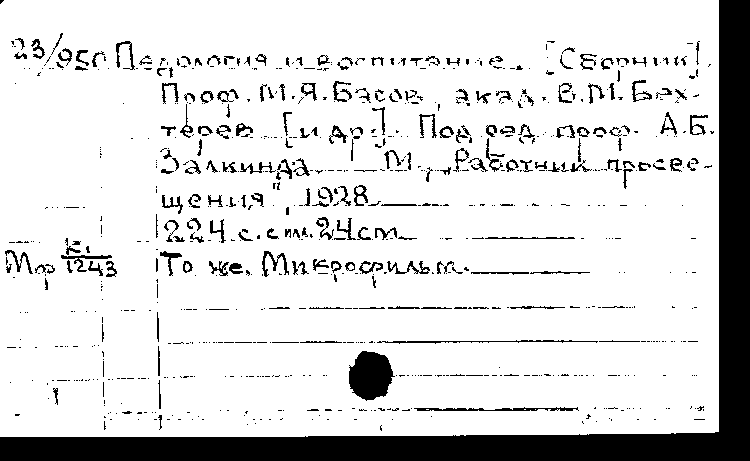 23/950 Педология и воспитание. [Сборник].
Проф. М.Я.Басов, акад. В.М.Бех-
терев [и др.]. Под ред. проф. А.Б.
Залкинда. М., „Работник просве-
щения", 1928
224 с. с ил. 24см
Мф К1/1243 То же. Микрофильм.